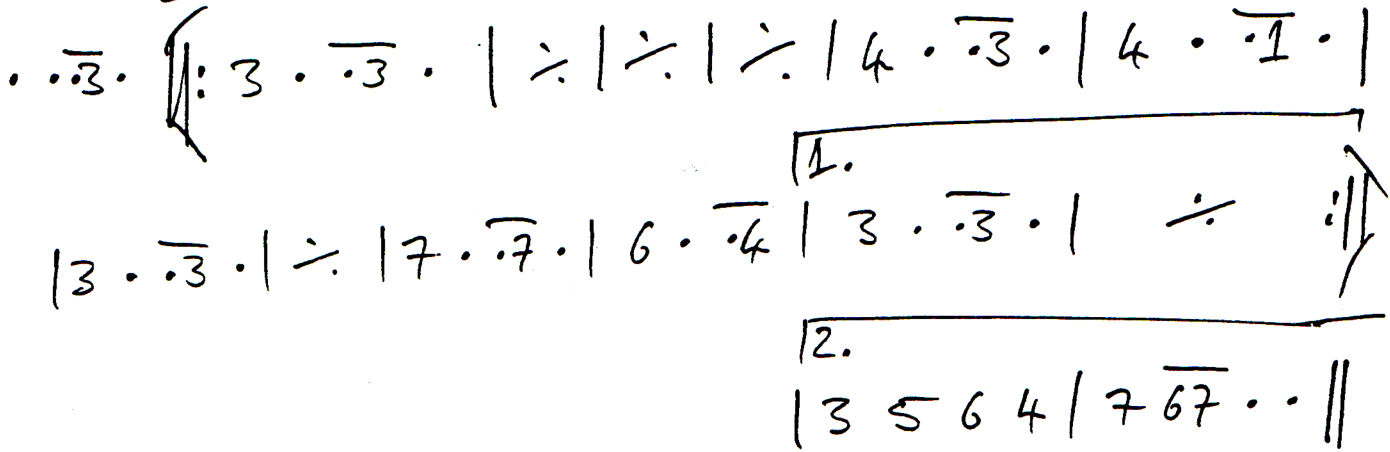 . .3 . ‖: 3 . .3 . | ٪ | ٪ | ٪ | 4 . .3 . | 4 . .1 . |
1.
| 3 . .3 . | ٪ | 7 . .7 . | 6 . .4 | 3 . .3 . | ٪ :‖
2.
| 3 5 6 4 | 7 67 . . ‖